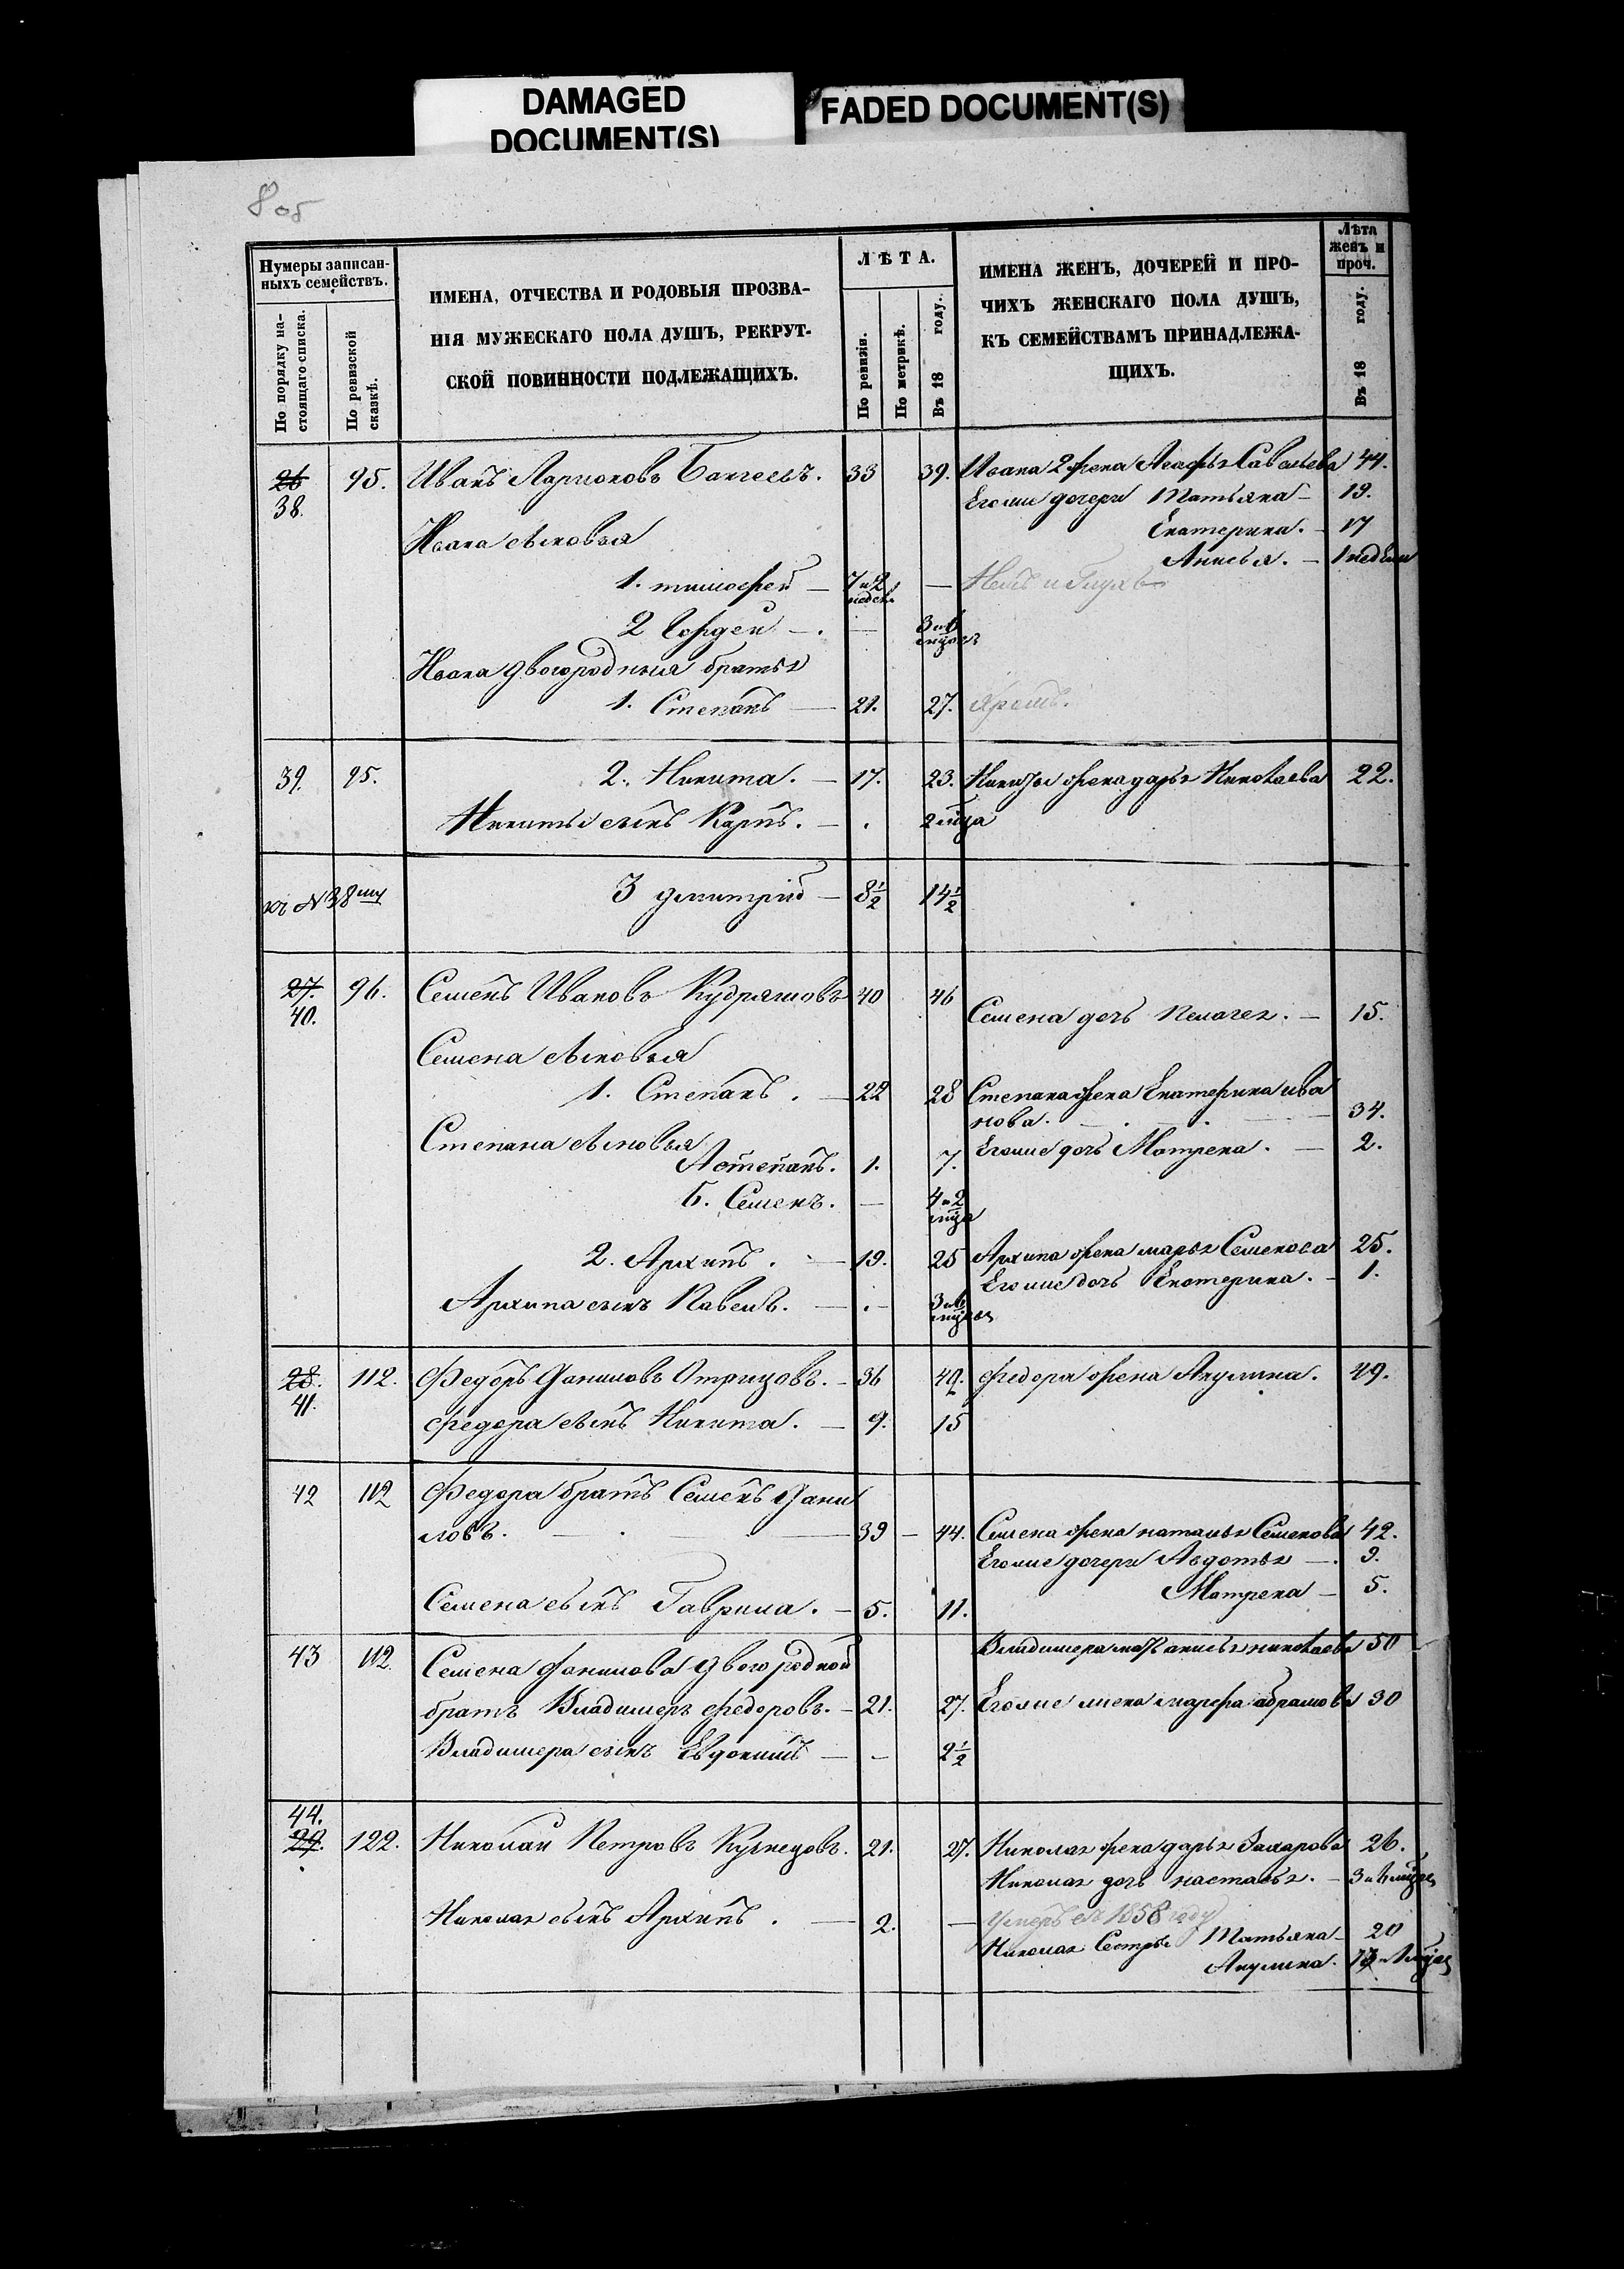 DAMAGED
DOCUMENT(S)
FADED DOCUMENT(S)
8 об
Нумеры записан-
ныхъ семействъ.
По порядку на-
стоящаго списка.
По ревизской
сказкѣ.
ИМЕНА, ОТЧЕСТВА И РОДОВЫЯ ПРОЗВА-
НІЯ МУЖЕСКАГО ПОЛА ДУШЪ, РЕКРУТ-
СКОЙ ПОВИННОСТИ ПОДЛЕЖАЩИХЪ.
ЛѢТА.
По ревизіи.
По метрикѣ.
Въ 18 году.
ИМЕНА ЖЕНЪ, ДОЧЕРЕЙ И ПРО-
ЧИХЪ ЖЕНСКАГО ПОЛА ДУШЪ,
КЪ СЕМЕЙСТВАМЪ ПРИНАДЛЕЖА-
ЩИХЪ.
Лѣта
женъ и
проч.
Въ 18 году.
26 95. Иванъ Ларионовъ 33 39. Ивана 2 жена Агафья Савельева 44.
38. Егоже дочери Татьяна – 19.
Екатерина. – 17
Ивана сыновья
Анисья. – 1 недели
1. тимофей – 7 и 2 недел. —
2 Гордей – . — 3 и 6 мцовъ
Ивана двоюродныя братья
1. Степанъ — 21. 27.
39. 95. 2. Никита. — 17. 23. Никиты жена дарья Николаева 22.
Никиты сынъ Карпъ. — . 2 мца
къ № 38му 3 дмитрій — 8 1/2 14 1/2
27. 96. Семенъ Ивановъ Кудряшовъ 40 46
40. Семена дочь Пелагея. — 15.
Семена сыновья
1. Степанъ . — 22 28 Степана жена Екатерина ива
нова. — 34.
Степана сыновья
А Степанъ. 1. 7. Егоже дочь Матрена. — 2.
Б. Семенъ. — 4 и 2 мца
2. Архипъ . — 19. 25 Архипа жена марья Семенова 25.
Егоже дочь Екатерина. – 1.
Архипа сынъ Павелъ. — . – 3 и 6 мцовъ
28. 112. Федоръ Даниловъ 36 42. федора жена Акулина. 49.
41. федора сынъ Никита. — 9. 15
42 112 Федора братъ Семенъ Дани
ловъ. — 39 – 44. Семена жена наталья Семенова 42.
Егоже дочери Авдотья — . 9.
Матрена – 5.
Семена сынъ Гаврила. – 5. 11.
Владимера мать анисья николаева 50
43 112. Семена Данилова двоюродной
братъ Владимеръ федоровъ. – 21. 27. Егоже жена марфа абрамова 30
Владимера сынъ Евдокимъ — – 2 1/2
44.
29. 122. Николай Петровъ Кузнецовъ. 21. 27. Николая жена дарья Захарова 26.
Николая дочь настасья. –
Николая сынъ Архипъ . — 2. — умеръ въ 1858 году
Николая Сестры Татьяна – 20
Акулина.